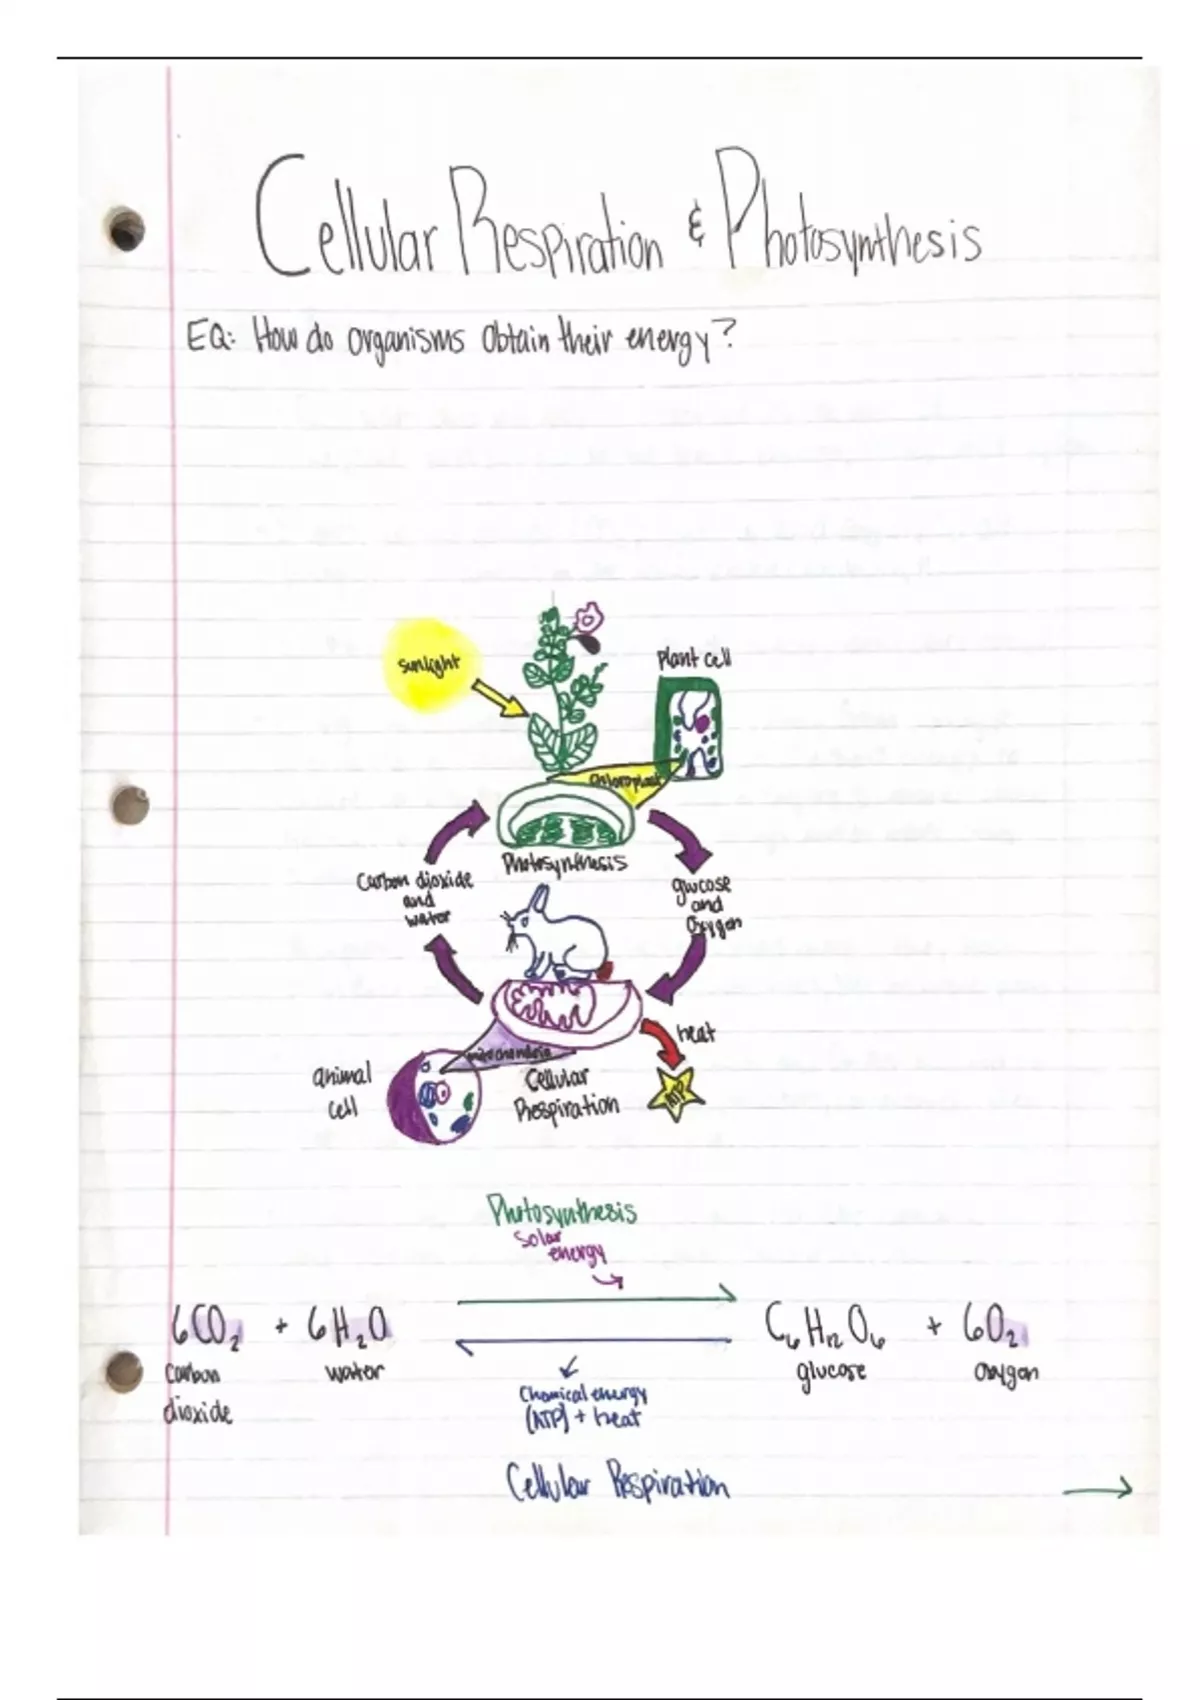 Cellular Respiration & Photosynthesis
EQ: How do organisms obtain their energy?
sunlight
plant cell
Chloroplast
Photosynthesis
Carbon dioxide
and
water
glucose
and
Oxygen
heat
mitochondria
animal
cell
Cellular
Respiration
ATP
Photosynthesis
Solar
energy
6CO₂ + 6H₂O
C₆H₁₂O₆ + 6O₂
Carbon
dioxide
water
glucose
Oxygen
Chemical energy
(ATP) + heat
Cellular Respiration